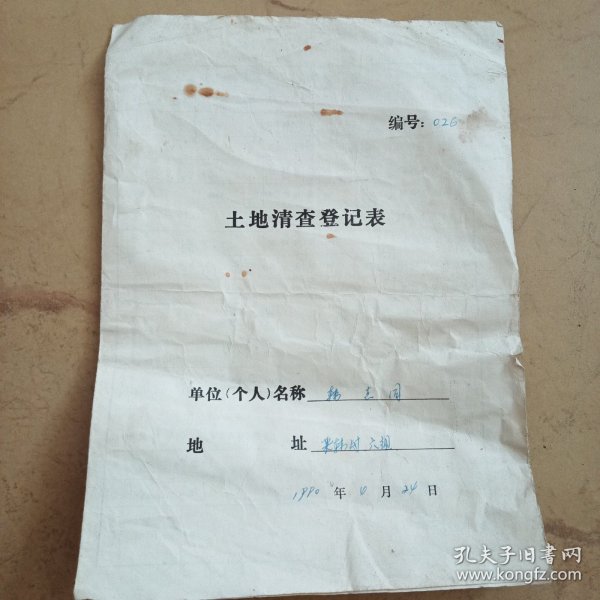 编号：026
土地清查登记表
单位（个人）名称 韩志同
地 址 村六组
1990年 月24日
孔夫子旧书网
www.kongfz.com